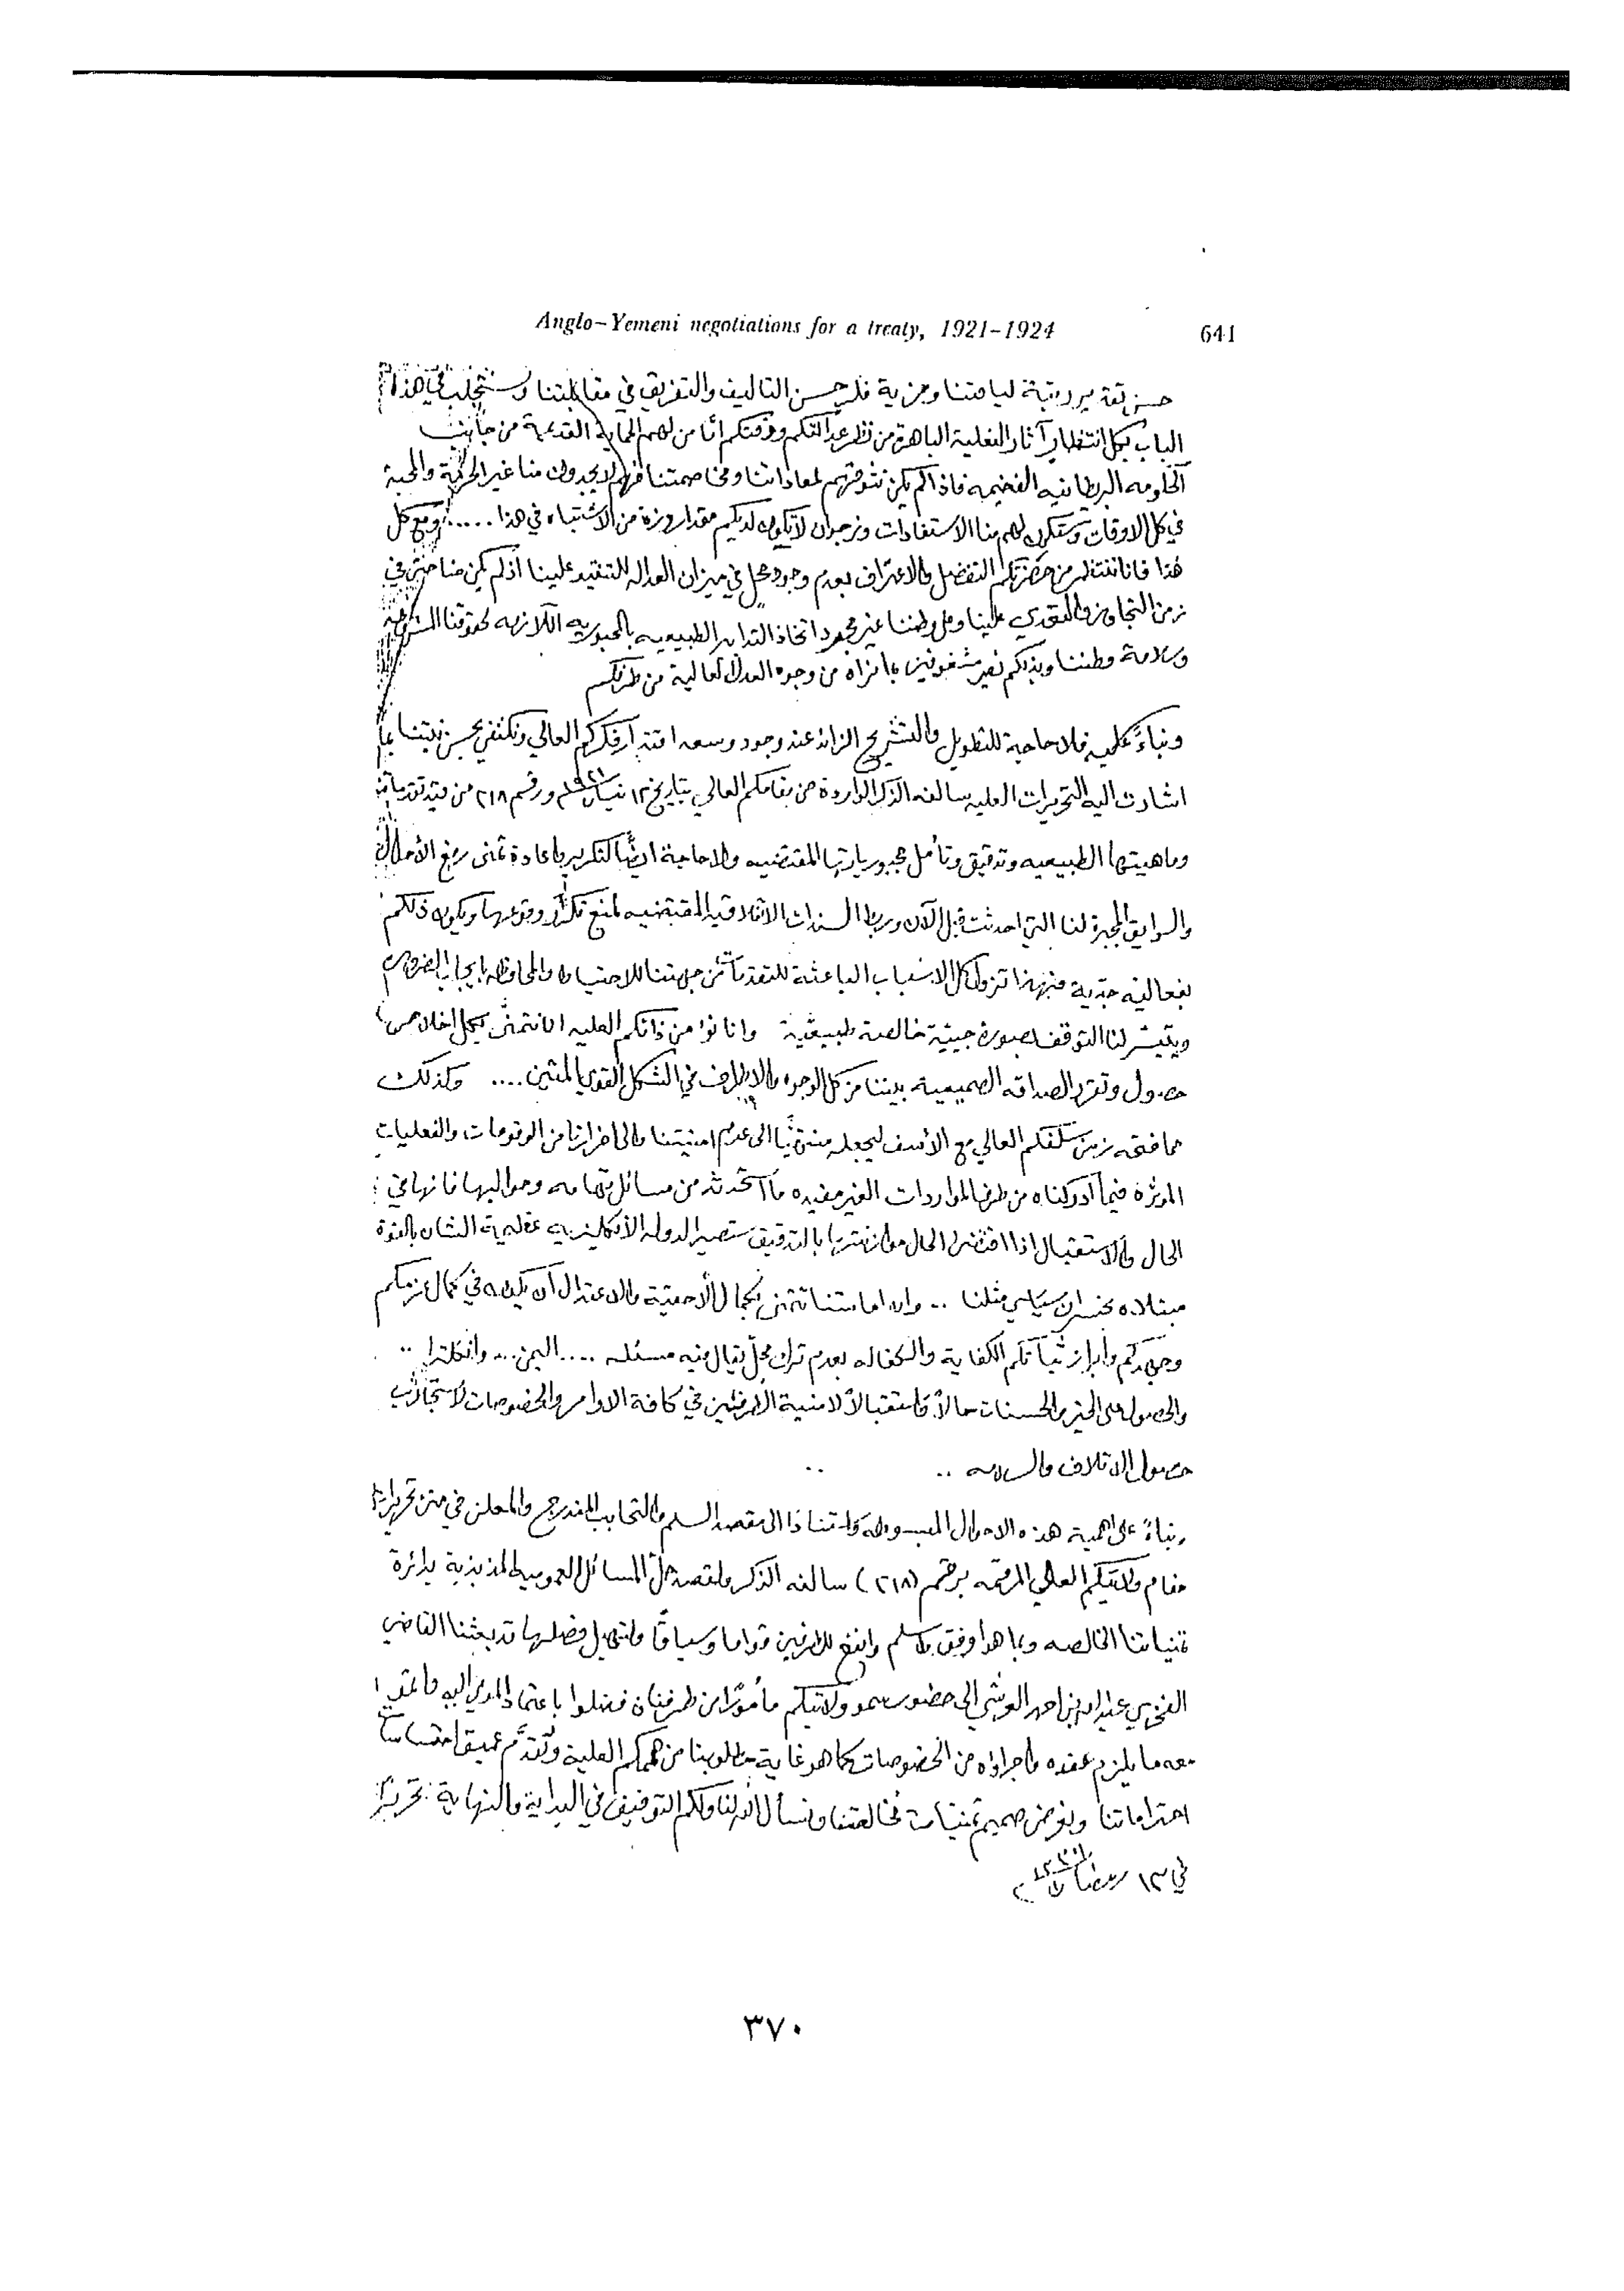 Anglo-Yemeni negotiations for a treaty, 1921-1924
641
حسن تقدير رتبة لياقتنا ومزية فكر حسن التاليف والتفريق في مقابلتنا في هذا
الباب بكل انتظار آثار الفعلية الباهرة من نظر عدالتكم ودقتكم أنا من لهم الحماية القديمة من جانب
البريطانيه الفخيمه فاذا لم يكن تشوقهم لمعاداتنا ومخاصمتنا فهم لا يجدون منا غير الحرمة والمحبة
في كل الاوقات لهم منا الاستفادات ونرجوا ان لا يكون لديكم مقدار وزة من الاشتباه في هذا ..... ومع كل
هذا فانا ننتظر من حضرتكم التفضل والاعتراف بعدم وجود محل في ميزان العداله للتنقيد علينا اذ لم يكن منا حتى في
زمن التجاوز والتعدي علينا وعلى وطننا غير مجرد اتخاذ التدابير الطبيعيه بالمجبوريه اللازمه لحقوقنا المشروعه
وسلامة وطننا وبذلكم نصير مشغوفين بما نراه من وجوه العدل العالية من طرفكم
وبناءً عليه فلا حاجة للتطويل والتشريح الزائد عند وجود وسعه اقتدار فكركم العالي ونكتفي بحسن نيتنا بما
اشارت اليه التحريرات العليه سالفه الذكر الواردة من مقامكم العالي بتاريخ ١٢ نيسان ١٩٢١م ورقم ٢١٨ من
وماهيتها الطبيعيه وتدقيق وتأمل مجبورياتها المقتضيه ولا حاجة ايضًا لتكرير واعادة تمنى رفع الأحوال
والسوابق المجبرة لنا التي احدثت قبل الآن وربط السندات الاتفاقيه المقتضيه لمنع تكرار وقوعها ويكون ذلكم
بفعاليه جدية فبهذا تزول كل الاسباب الباعثة للتقدمات من جهتنا للاحتياط والمحافظه بايجاب الضروري
ويتيسر لنا التوقف بصورة جيبية خالصة طبيعية وانا نؤمن ذاتكم العليه انا نتمنى بكل اخلاص
حصول وتقرر الصداقه الصميمية بيننا من كل الوجوه والاطراف في الشكل القوي المتين .... وكذلك
مما فتحه زمن سلفكم العالي مع الأسف ليجعله منتجًا الى عدم امنيتنا والى اضرارنا من الوقوعات والفعليات
المؤثره فيما أدركناه من طرف المواردات الغير مفيده ما استحدث من مسائل تهامه وحواليها فانها في
الحال والاستقبال اذا اقتضى الحال موازنتها بالتدقيق ستصير الدوله الأنكليزيه عظيمة الشان بالقوة
مبتلاه بخسران سياسي مثلنا .. وان امانتنا تتمنى بكمال الأحقية والاعتدال أن يكون في كمال عزمكم
وجهدكم وابراز ثباتكم الكفاية والكفاله بعدم ترك محل يقال فيه مسئله .... اليمن ... وانكلترا ..
والحصول على الخير والحسنات حالاً واستقبالاً لامنية الطرفين في كافة الاوامر والخصوصات لاستجلاب
حصول الائتلاف والسلامه ..
وبناءً على اهمية هذه الاحوال المبسوطه واستنادًا الى مقصد السلم والتحابب المندرج والمعلن في متن تحريرات
مقام ولايتكم العالي المرقمه برقم (٢١٨) سالفه الذكر ولقصد حل المسائل العموميه المذبذبة بدائرة
تمنياتنا الخالصه وبما هو اوفق واسلم وانفع للطرفين قواما وسياقا ولتسهيل فصلها قد بعثنا القاضي
الفخري عبدالله بن احمد العرشي الى حضور سمو ولايتكم مأمورًا من طرفنا فتفضلوا باعتماد المومى اليه
معه ما يلزم عقده واجراؤه من الخصوصات كما هو غاية مطلوبنا من هممكم العلية ونقدم عميق احتساسات
احتراماتنا ونعرض صميم تمنيات مخالصتنا ونسأل الله لنا ولكم التوفيق في البداية والنهاية تحريرًا
في ١٣ رمضان
٣٧٠